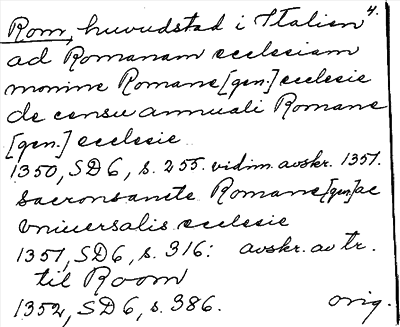 Rom, huvudstad i Italien 4.
ad Romanam ecclesiam
nomine Romane [gen.] ecclesie
de censu annuali Romane
[gen.] ecclesie
1350, SD 6, s. 255. vidim. avskr. 1351.
sacronsancte Romane [gen] ac
vniuersalis ecclesie
1351, SD 6, s. 316: avskr. av tr.
til Room
1352, SD 6, s. 386. orig.